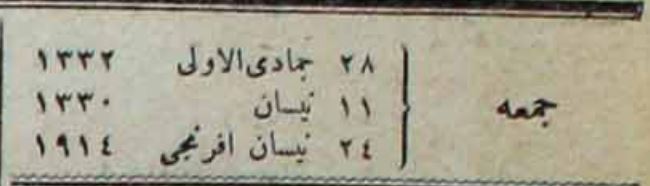 جمعه
٢٨ جمادى الاولى ١٣٣٢
١١ نيسان ١٣٣٠
٢٤ نيسان افرنجى ١٩١٤